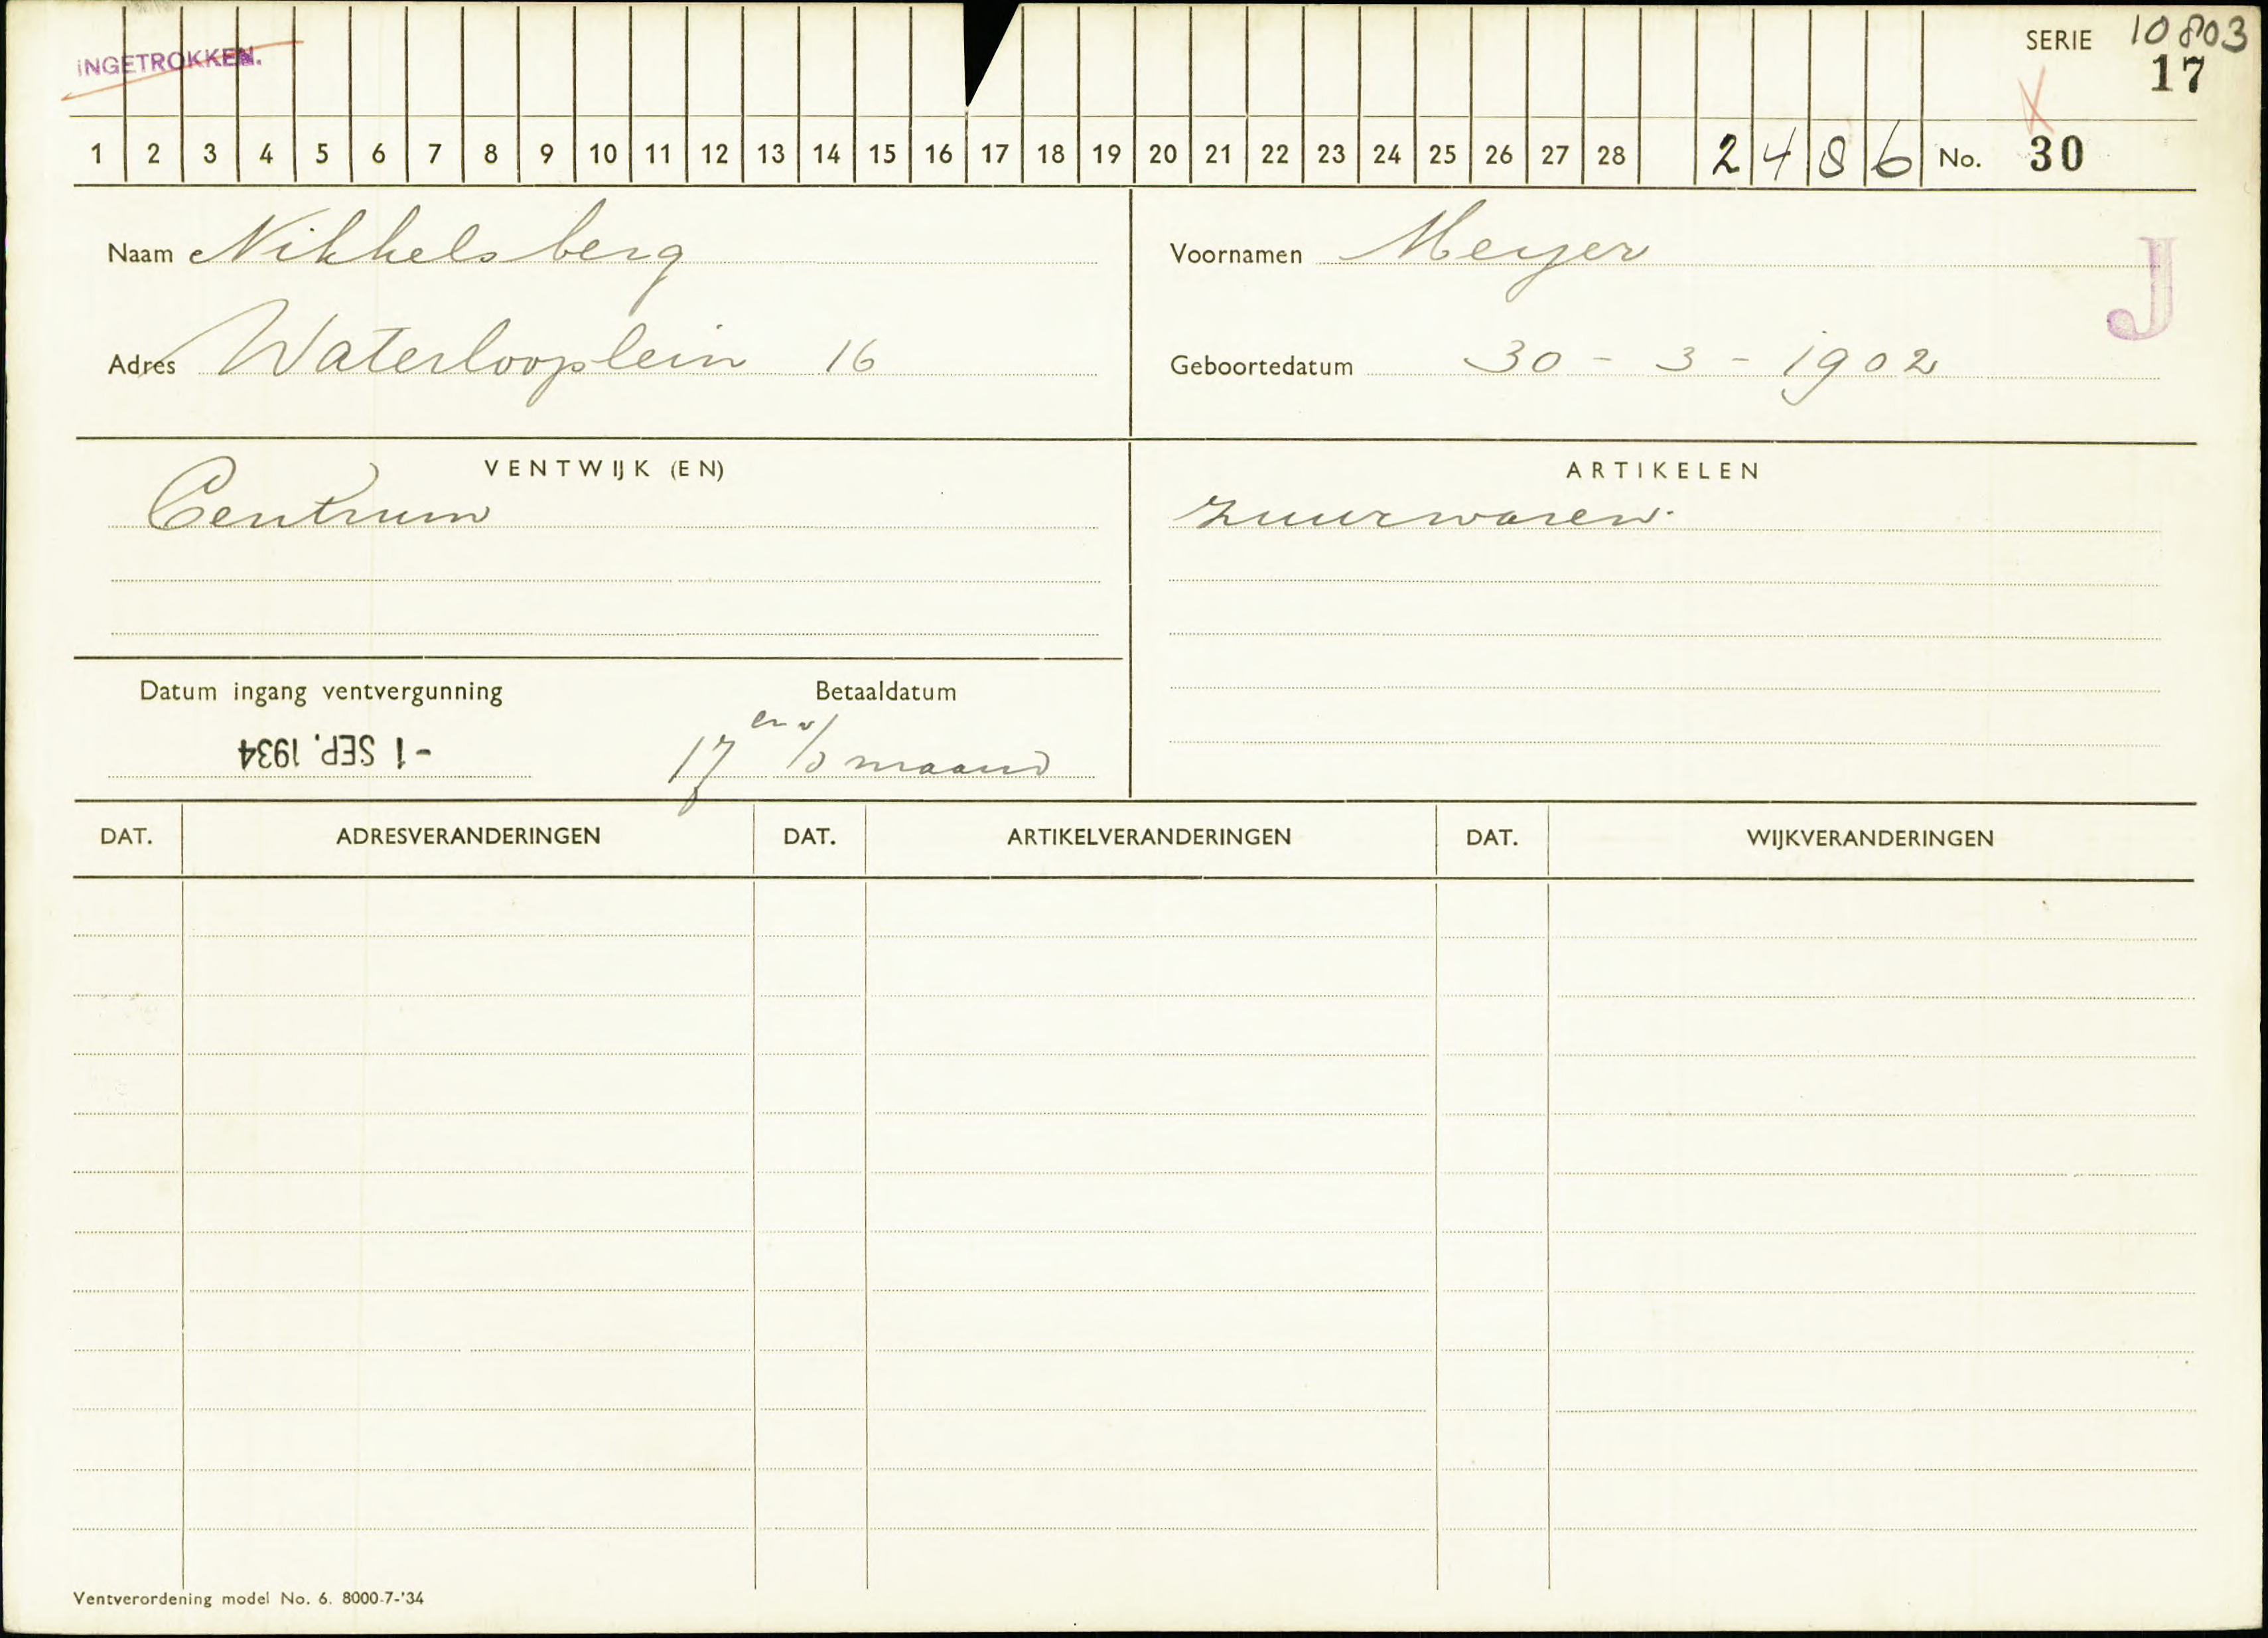 INGETROKKEN.
SERIE 10803
17
1 2 3 4 5 6 7 8 9 10 11 12 13 14 15 16 17 18 19 20 21 22 23 24 25 26 27 28 2 4 8 6 No. 30
Naam Nikkelsberg
Voornamen Meyer
J
Adres Waterlooplein 16
Geboortedatum 30 - 3 - 1902
VENTWIJK (EN)
Centrum
ARTIKELEN
zuurwaren.
Datum ingang ventvergunning
-1 SEP. 1934
Betaaldatum
17 en v/d maand
DAT. ADRESVERANDERINGEN DAT. ARTIKELVERANDERINGEN DAT. WIJKVERANDERINGEN
Ventverordening model No. 6. 8000-7-'34